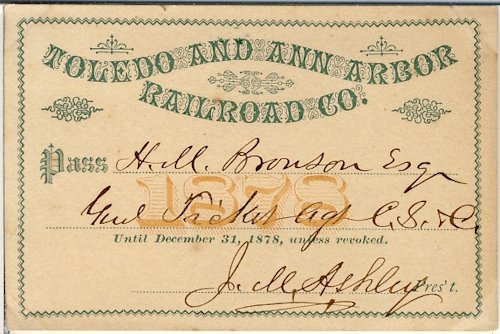 TOLEDO AND ANN ARBOR
RAILROAD CO.
Pass H. M. Bronson Esq
1878
Genl Ticket Agt C. S. & C.
Until December 31, 1878, unless revoked.
J. M. Ashley Pres't.